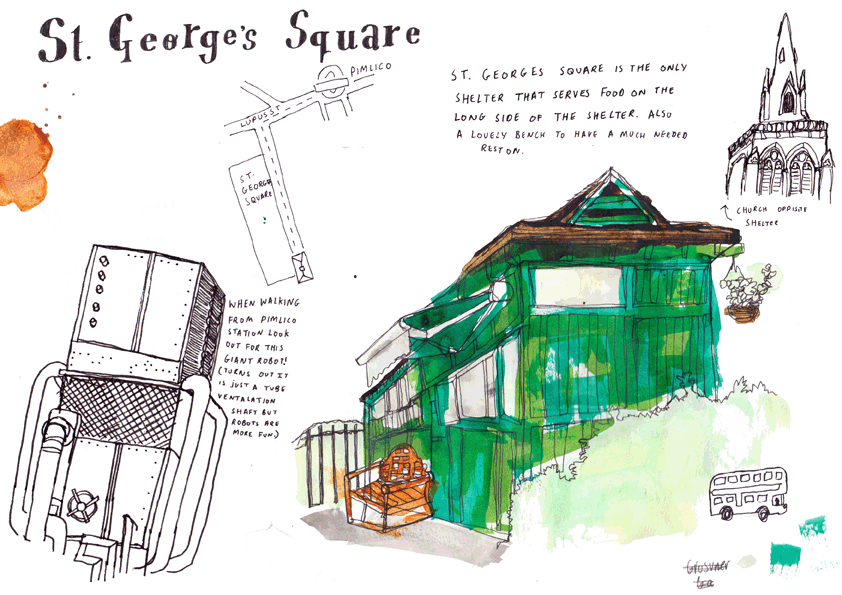 St. George's Square
PIMLICO
LUPUS ST
ST.
GEORGE
SQUARE
ST. GEORGES SQUARE IS THE ONLY
SHELTER THAT SERVES FOOD ON THE
LONG SIDE OF THE SHELTER. ALSO
A LOVELY BENCH TO HAVE A MUCH NEEDED
REST ON.
CHURCH OPPOSITE
SHELTER
WHEN WALKING
FROM PIMLICO
STATION LOOK
OUT FOR THIS
GIANT ROBOT!
(TURNS OUT IT
IS JUST A TUBE
VENTALATION
SHAFT BUT
ROBOTS ARE
MORE FUN.)